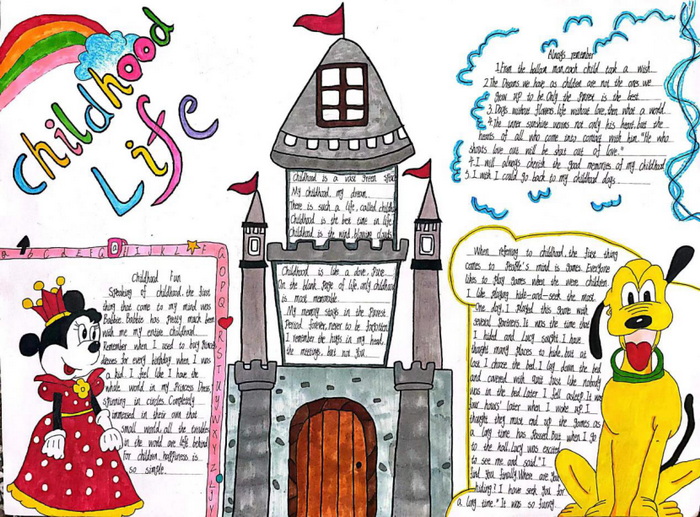 Childhood
Life
Always remember
1. From the balloon man, each child took a wish
2. The Dreams we have as children are not the ones we
grow up to be. Only the purest is the best
3. Days without flowers, life without love, then what a world
4. The inner sunshine warms not only his heart, but the
hearts of all who come into contact with him. "He who
shouts love out will be shut out of love."
4. I will always cherish the good memories of my childhood
5. I wish I could go back to my childhood days
Childhood is a vast green
My childhood, my dream
There is such a life, called
Childhood is the best time in life
Childhood is the wind blowing clouds
Childhood is like a dove. Pure
On the blank page of life, only childhood
is most memorable.
My memory stays in the purest
Period forever, never to be forgotten.
I remember the hats in my head,
the meetings, but not you.
A B C D E F G H I J K L M
O P Q R S T U V W X Y Z
Childhood Fun
Speaking of childhood, the first
thing that came to my mind was
Barbie. Barbie has pretty much been
with me my entire childhood.
Remember when I used to buy
dresses for every birthday when I was
a kid. I feel like I have the
whole world in my Princess Dress,
spinning in circles. Completely
immersed in their own that
small world, all the troubles
in the world are left behind
For children, happiness is
so simple.
When referring to childhood, the first thing
comes to People's mind is games. Everyone
likes to play games when they were children.
I like playing hide-and-seek the most.
One day, I played this game with
several partners. It was the time that
I hided and Lucy sought. I have
thought many places to hide, but at
last I chose the bed. I lay down the bed
and covered with quilt just like nobody
was in the bed. Later I fell asleep. It was
four hours' later when I woke up. I
thought they must end up the games as
a long time has passed. But when I go
to the hall, Lucy was excited
to see me and said, "I
find you finally. Where are you
hiding? I have seek you for
a long time." It was so funny.